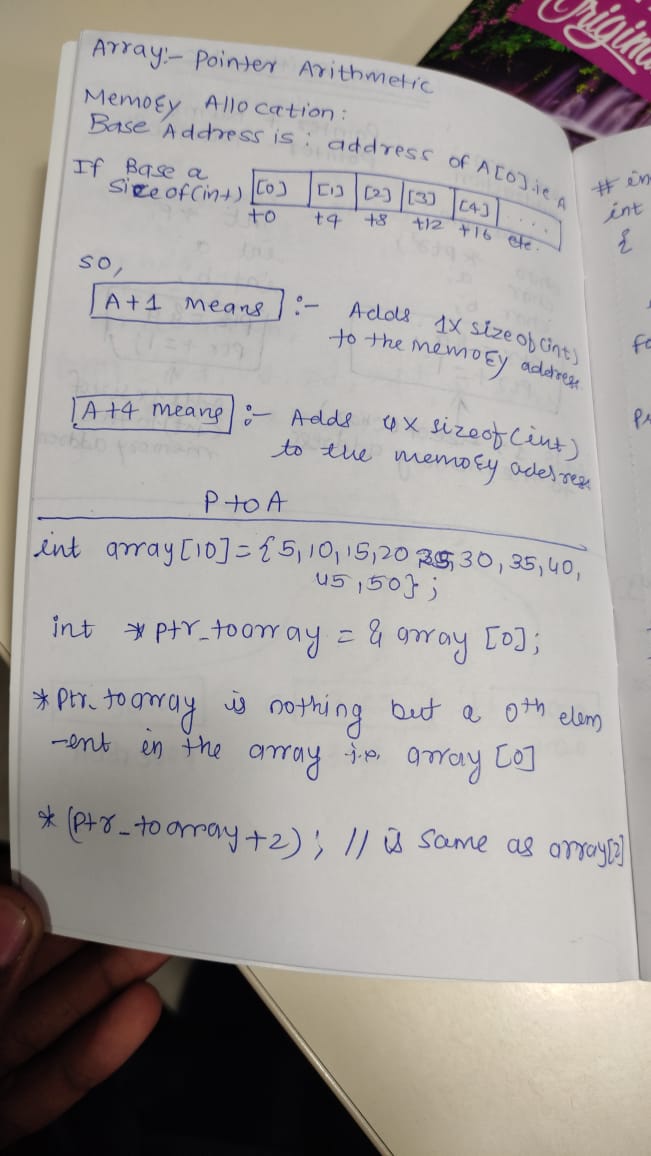 Original
Array:- Pointer Arithmetic
Memory Allocation:
Base Address is: address of A[0] i.e A
If Base a
sizeof(int) [0] [1] [2] [3] [4] ....
+0 +4 +8 +12 +16 etc.
so,
A+1 means :- Adds 1x sizeof(int)
to the memory address
A+4 means :- Adds 4x sizeof(int)
to the memory address
P to A
int array[10]={5,10,15,20 25,30,35,40,
45,50};
int *ptr_toarray = & array [0];
*ptr_toarray is nothing but a 0th elem
-ent in the array i.e. array [0]
*(ptr_toarray+2); // is same as array[2]
# in
int
{
fo
Pr